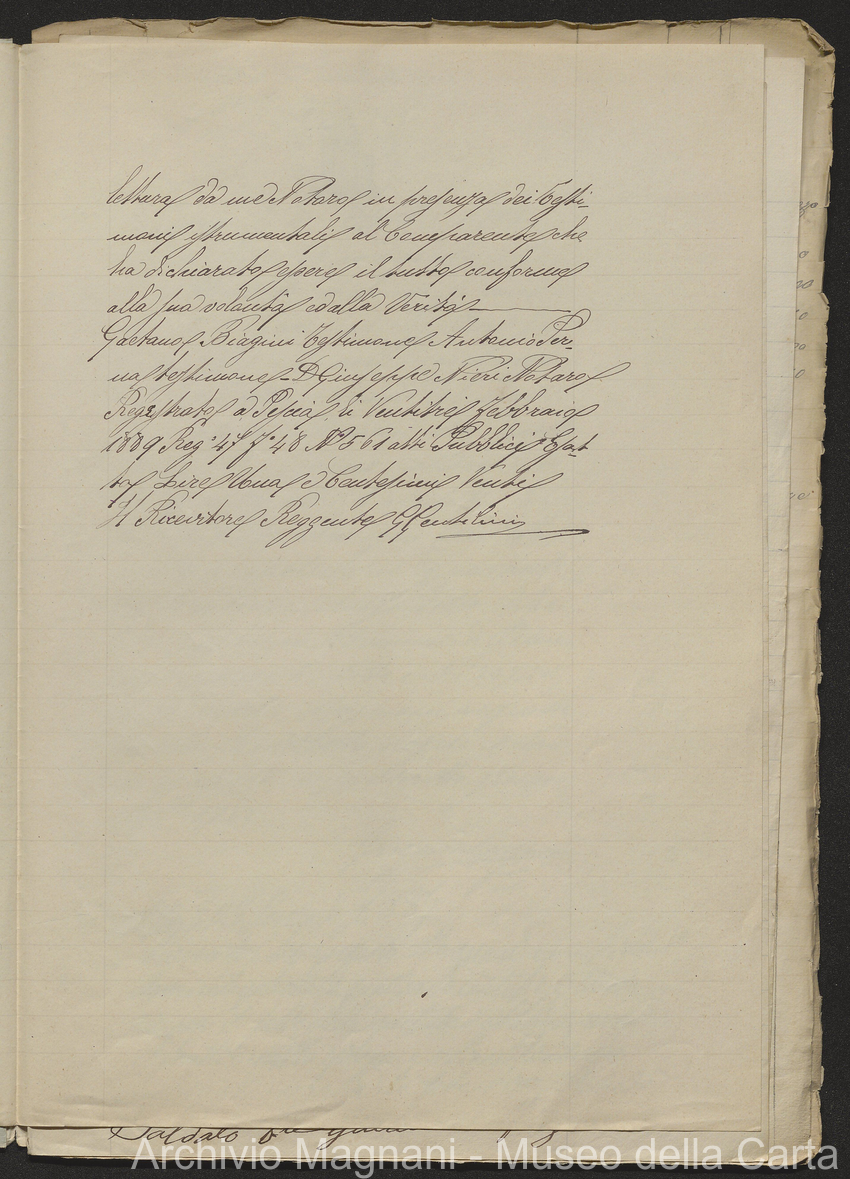 lettura da me Notaro in presenza dei Testi-
moni istrumentali al Comparente che
ha dichiarato essere il tutto conforme
alla sua volontà ed alla Verità
Gaetano Biagini Testimone Antonio Per-
na testimone - D Giuseppe Nieri Notaro
Registrato a Pescia li Ventitre Febbraio
1889 Reg° 47 f° 48 N° 561 atti Pubblici Esat
te Lire Una e Centesimi Venti
Il Ricevitore Reggente G Gentilini
Saldato
Archivio Magnani - Museo della Carta